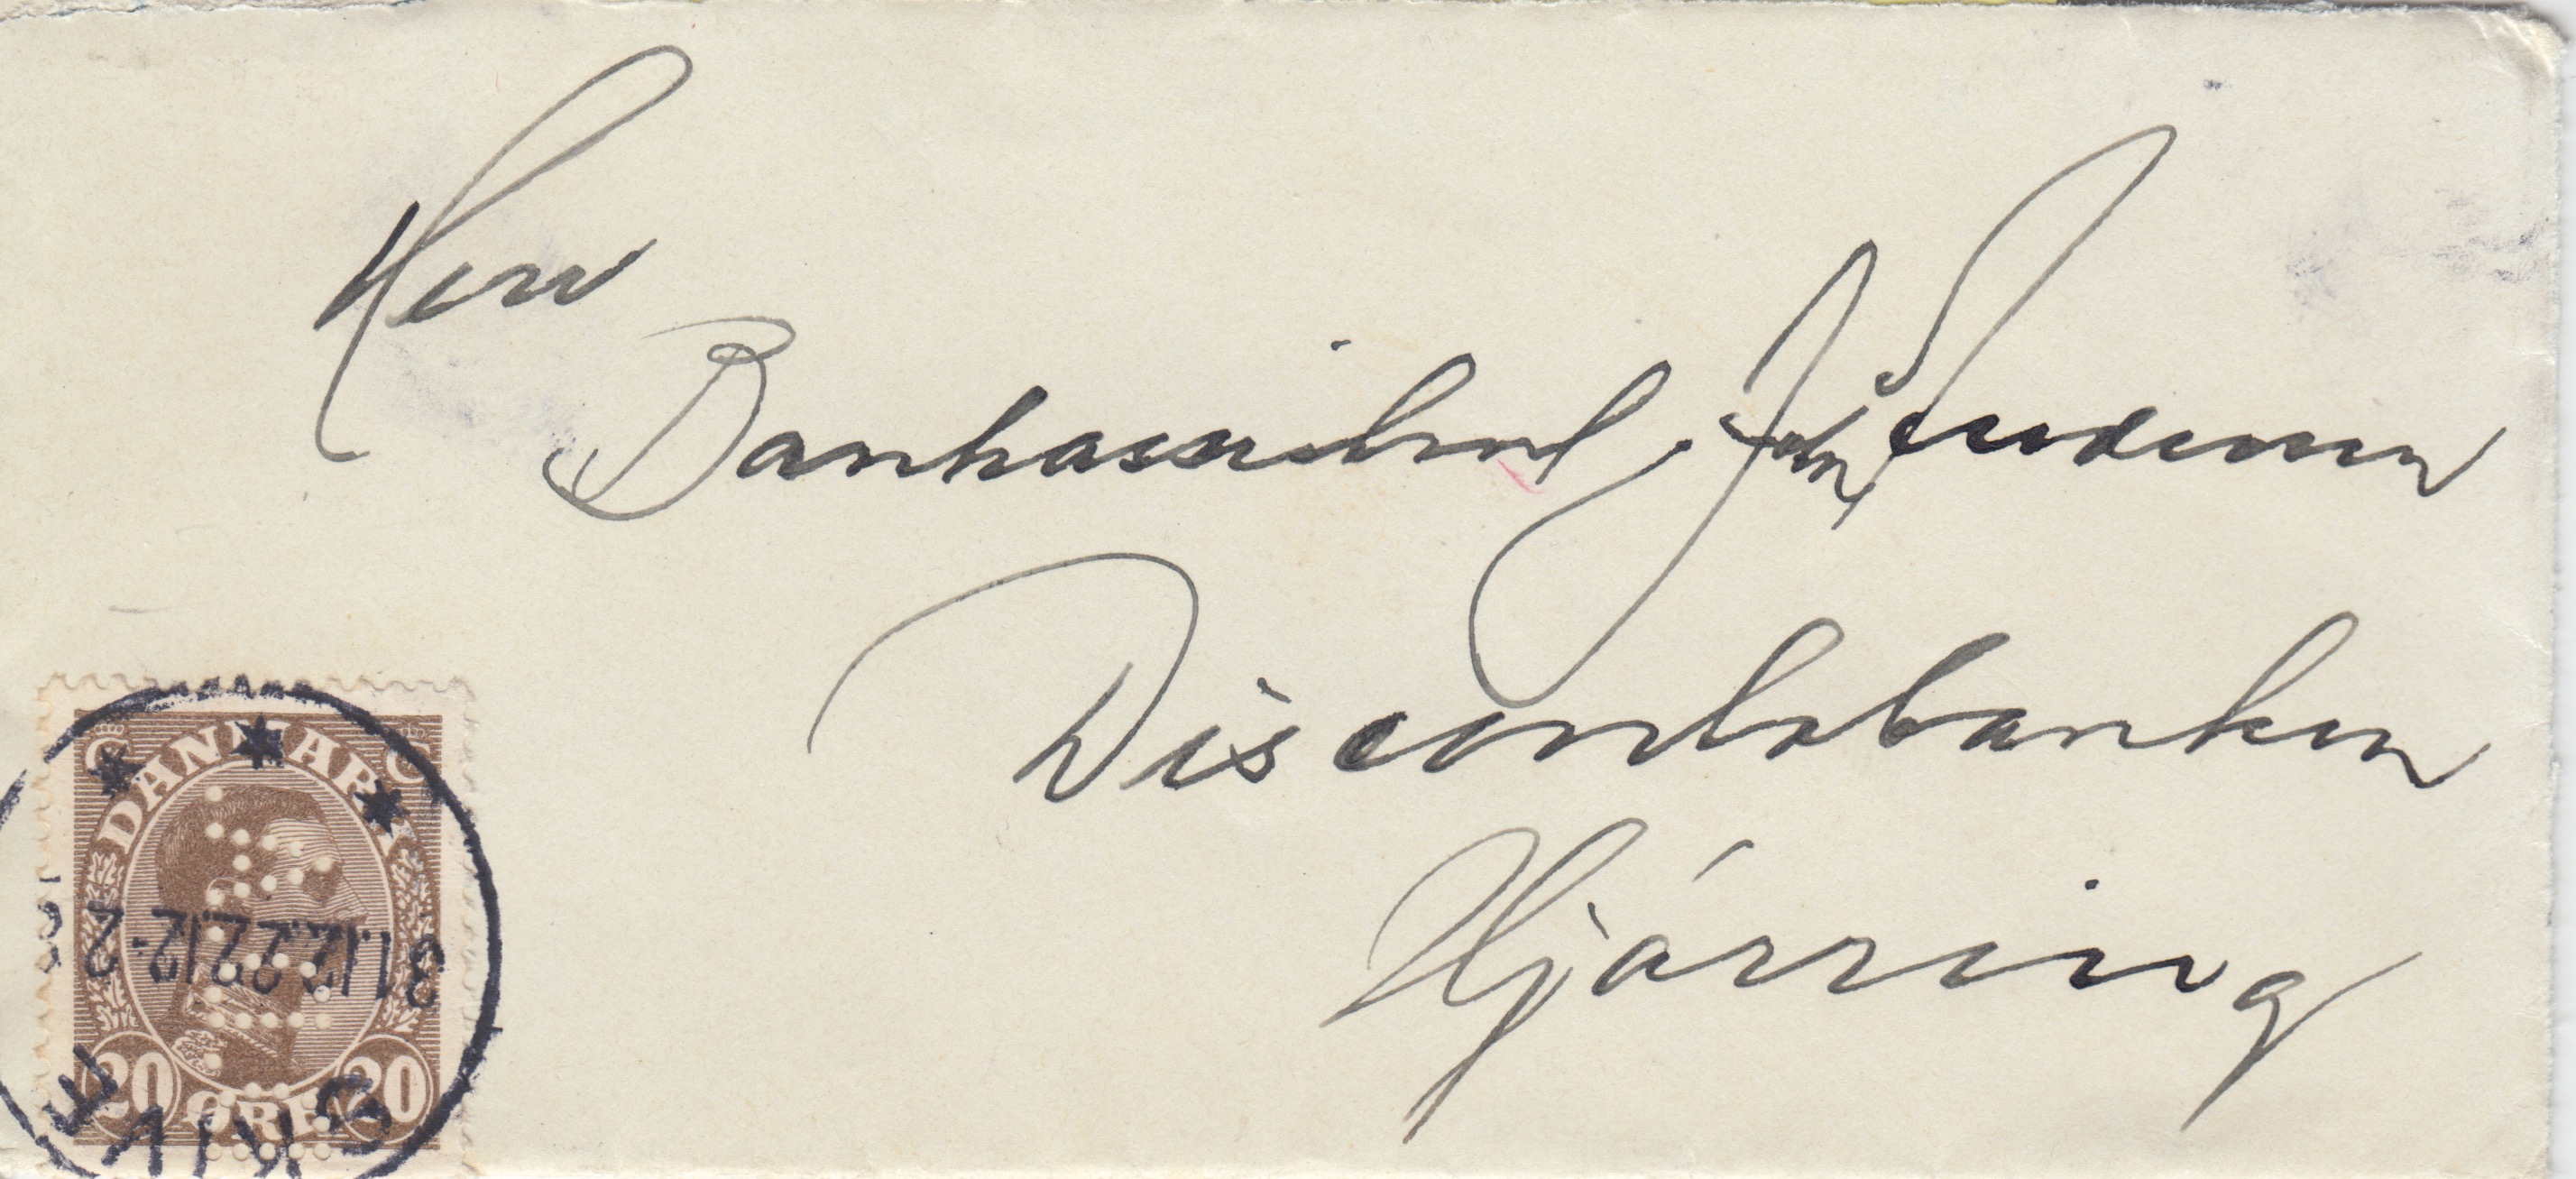 Herr
Bankassistent
Discontobanken
Hjórring
DANMARK
31.12.22.12-2
20 ØRE 20
SKIVE